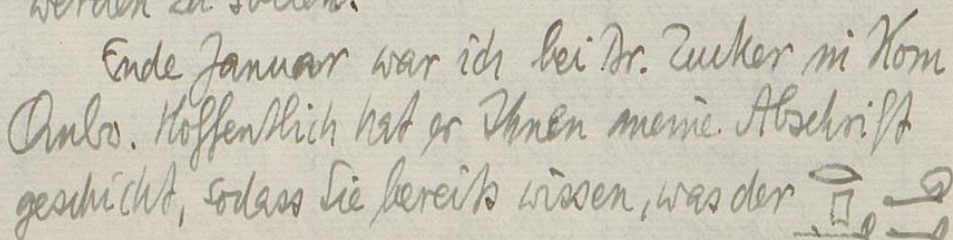 werden zu sollen.
Ende Januar war ich bei Dr. Zucker in Kom
Ombo. Hoffentlich hat er Ihnen meine Abschrift
geschickt, sodass Sie bereits wissen, was der